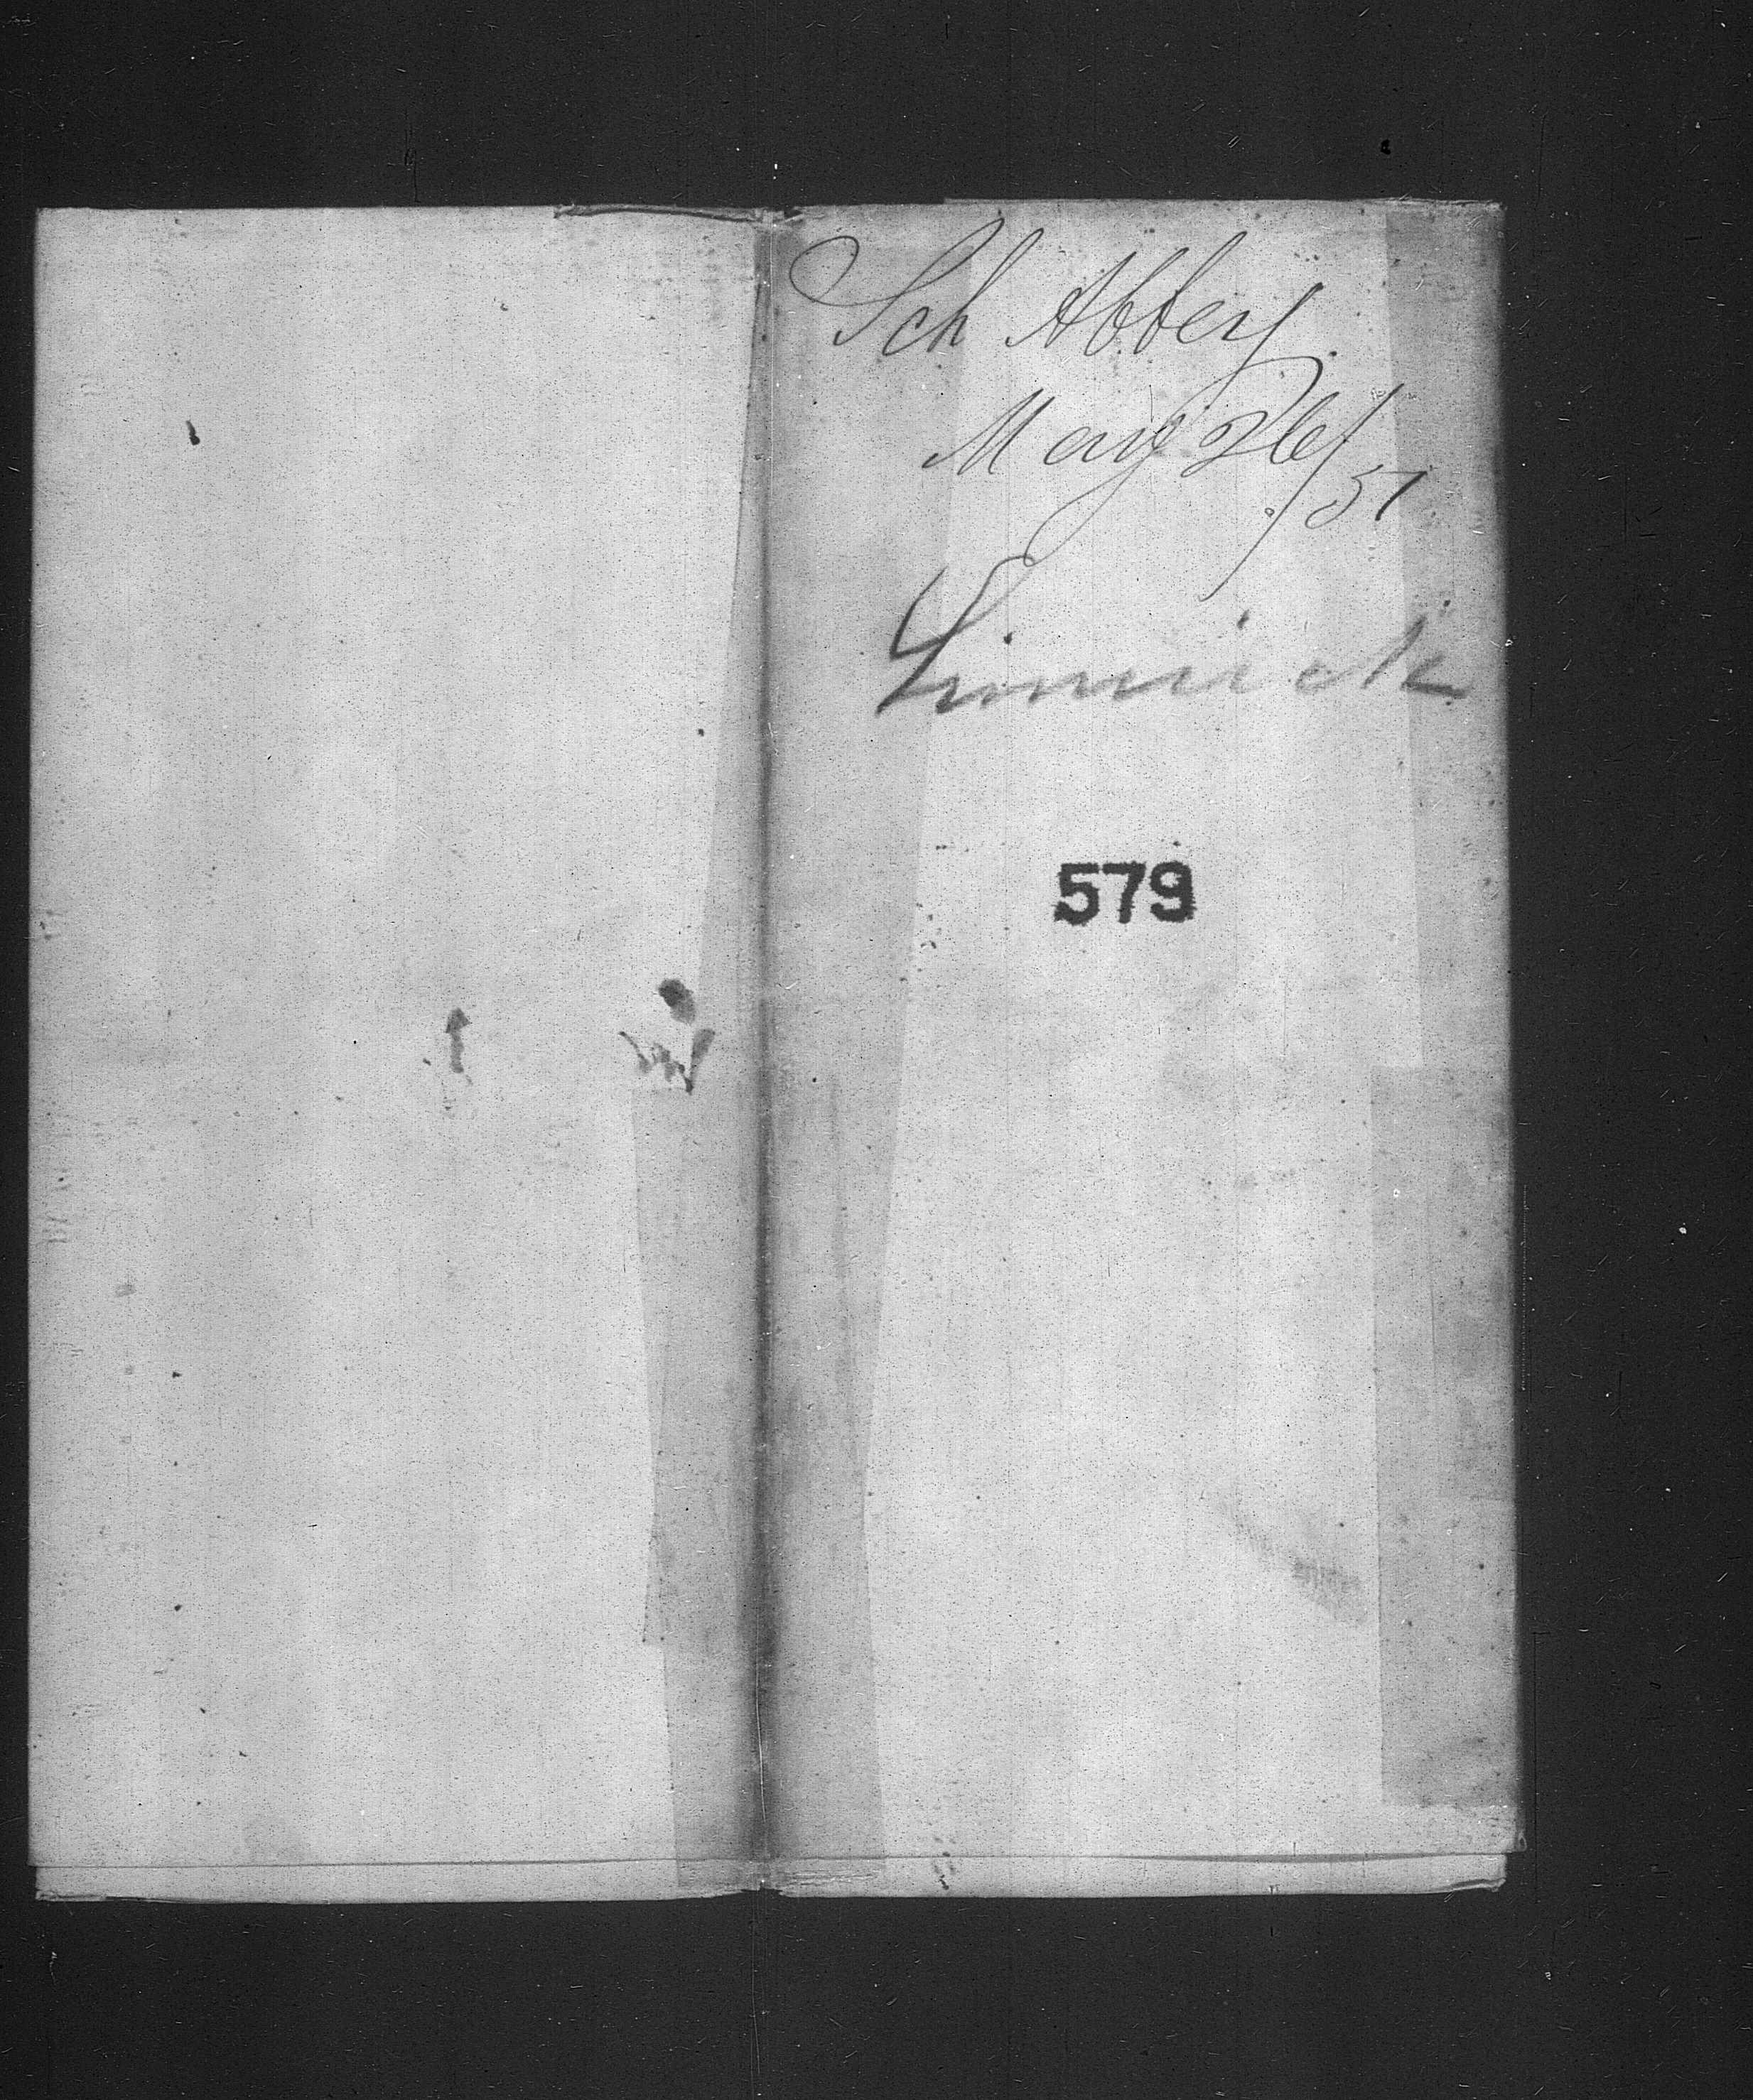 Sch Abbey
May 26/
51
Limerick
579